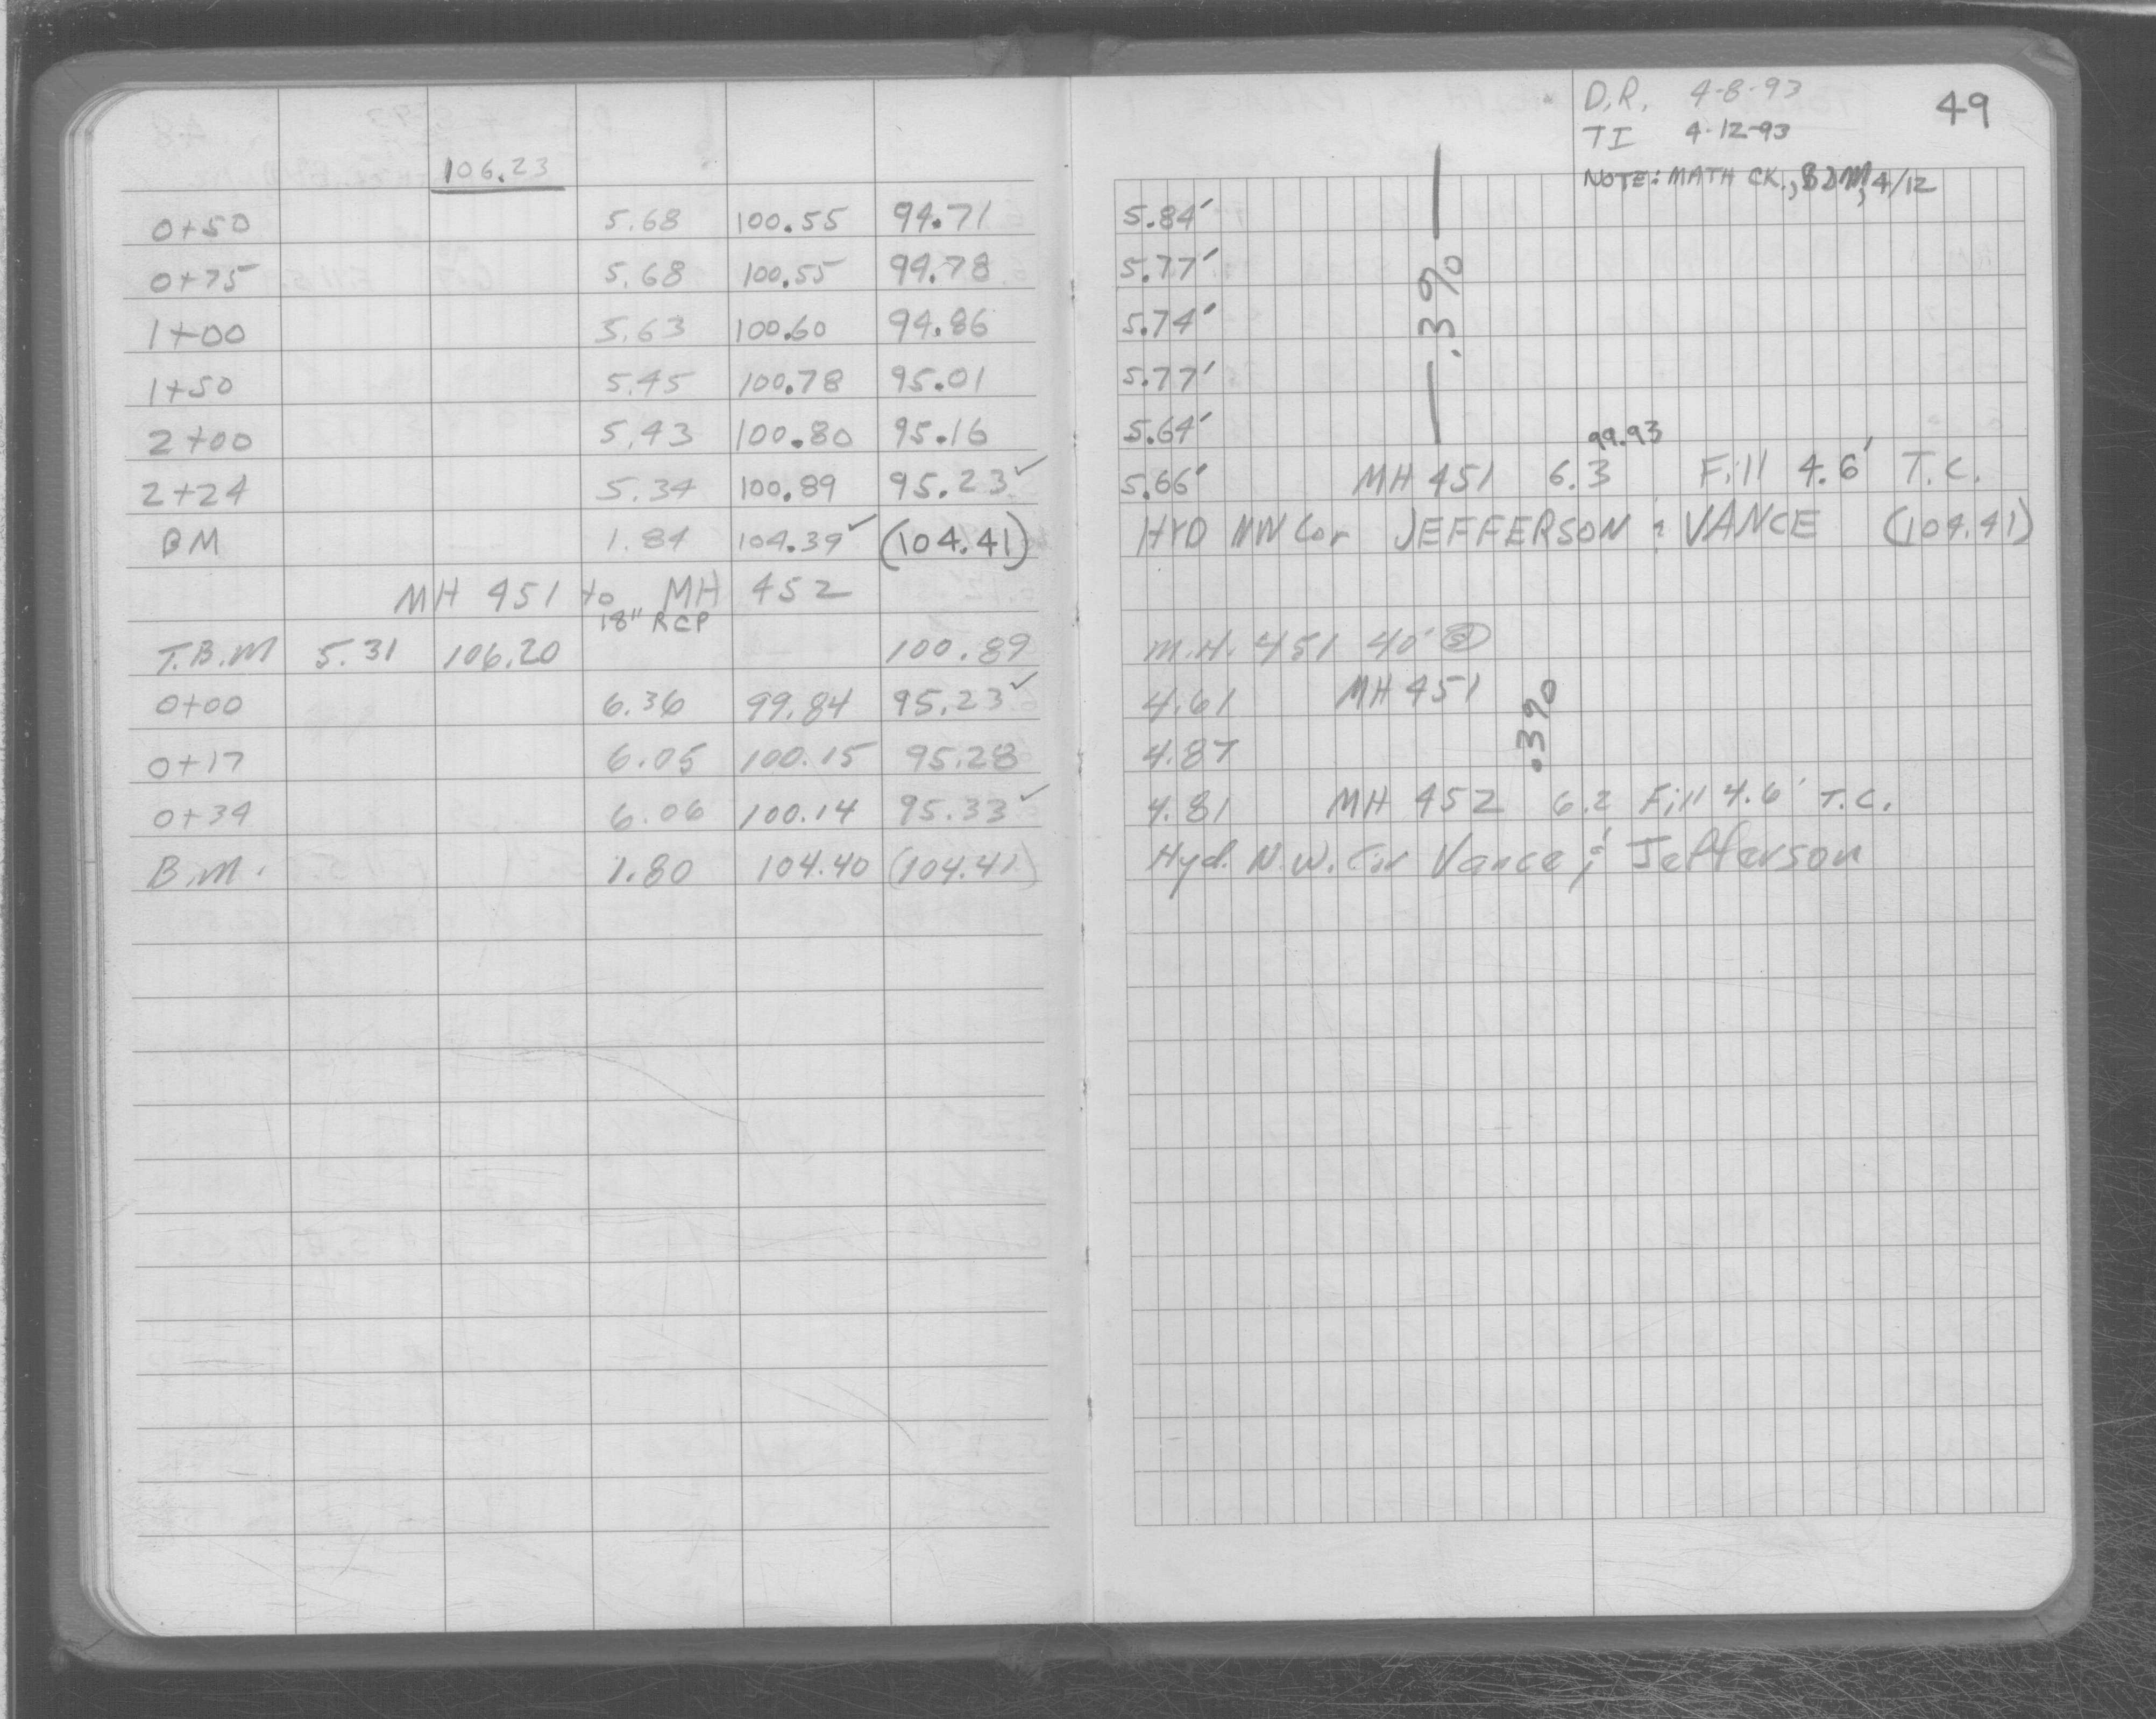 D.R. 4-8-93
49
TI 4-12-93
NOTE: MATH CK., BDM, 4/12
106.23
0+50 5.68 100.55 94.71 5.84'
0+75 5.68 100.55 94.78 5.77'
1+00 5.63 100.60 94.86 5.74'
.3%
1+50 5.45 100.78 95.01 5.77'
2+00 5.43 100.80 95.16 5.64'
99.93
2+24 5.34 100.89 95.23✓ 5.66' MH 451 6.3 Fill 4.6' T.C.
BM 1.84 104.39✓ (104.41) HYD NW Cor JEFFERSON & VANCE (104.41)
MH 451 to MH 452
18" RCP
T.B.M 5.31 106.20 100.89 M.H. 451 40'
0+00 6.36 99.84 95.23✓ 4.61 MH 451
.3%
0+17 6.05 100.15 95.28 4.87
0+34 6.06 100.14 95.33✓ 4.81 MH 452 6.2 Fill 4.6' T.C.
B.M. 1.80 104.40 (104.41) Hyd. N.W. Cor Vance & Jefferson